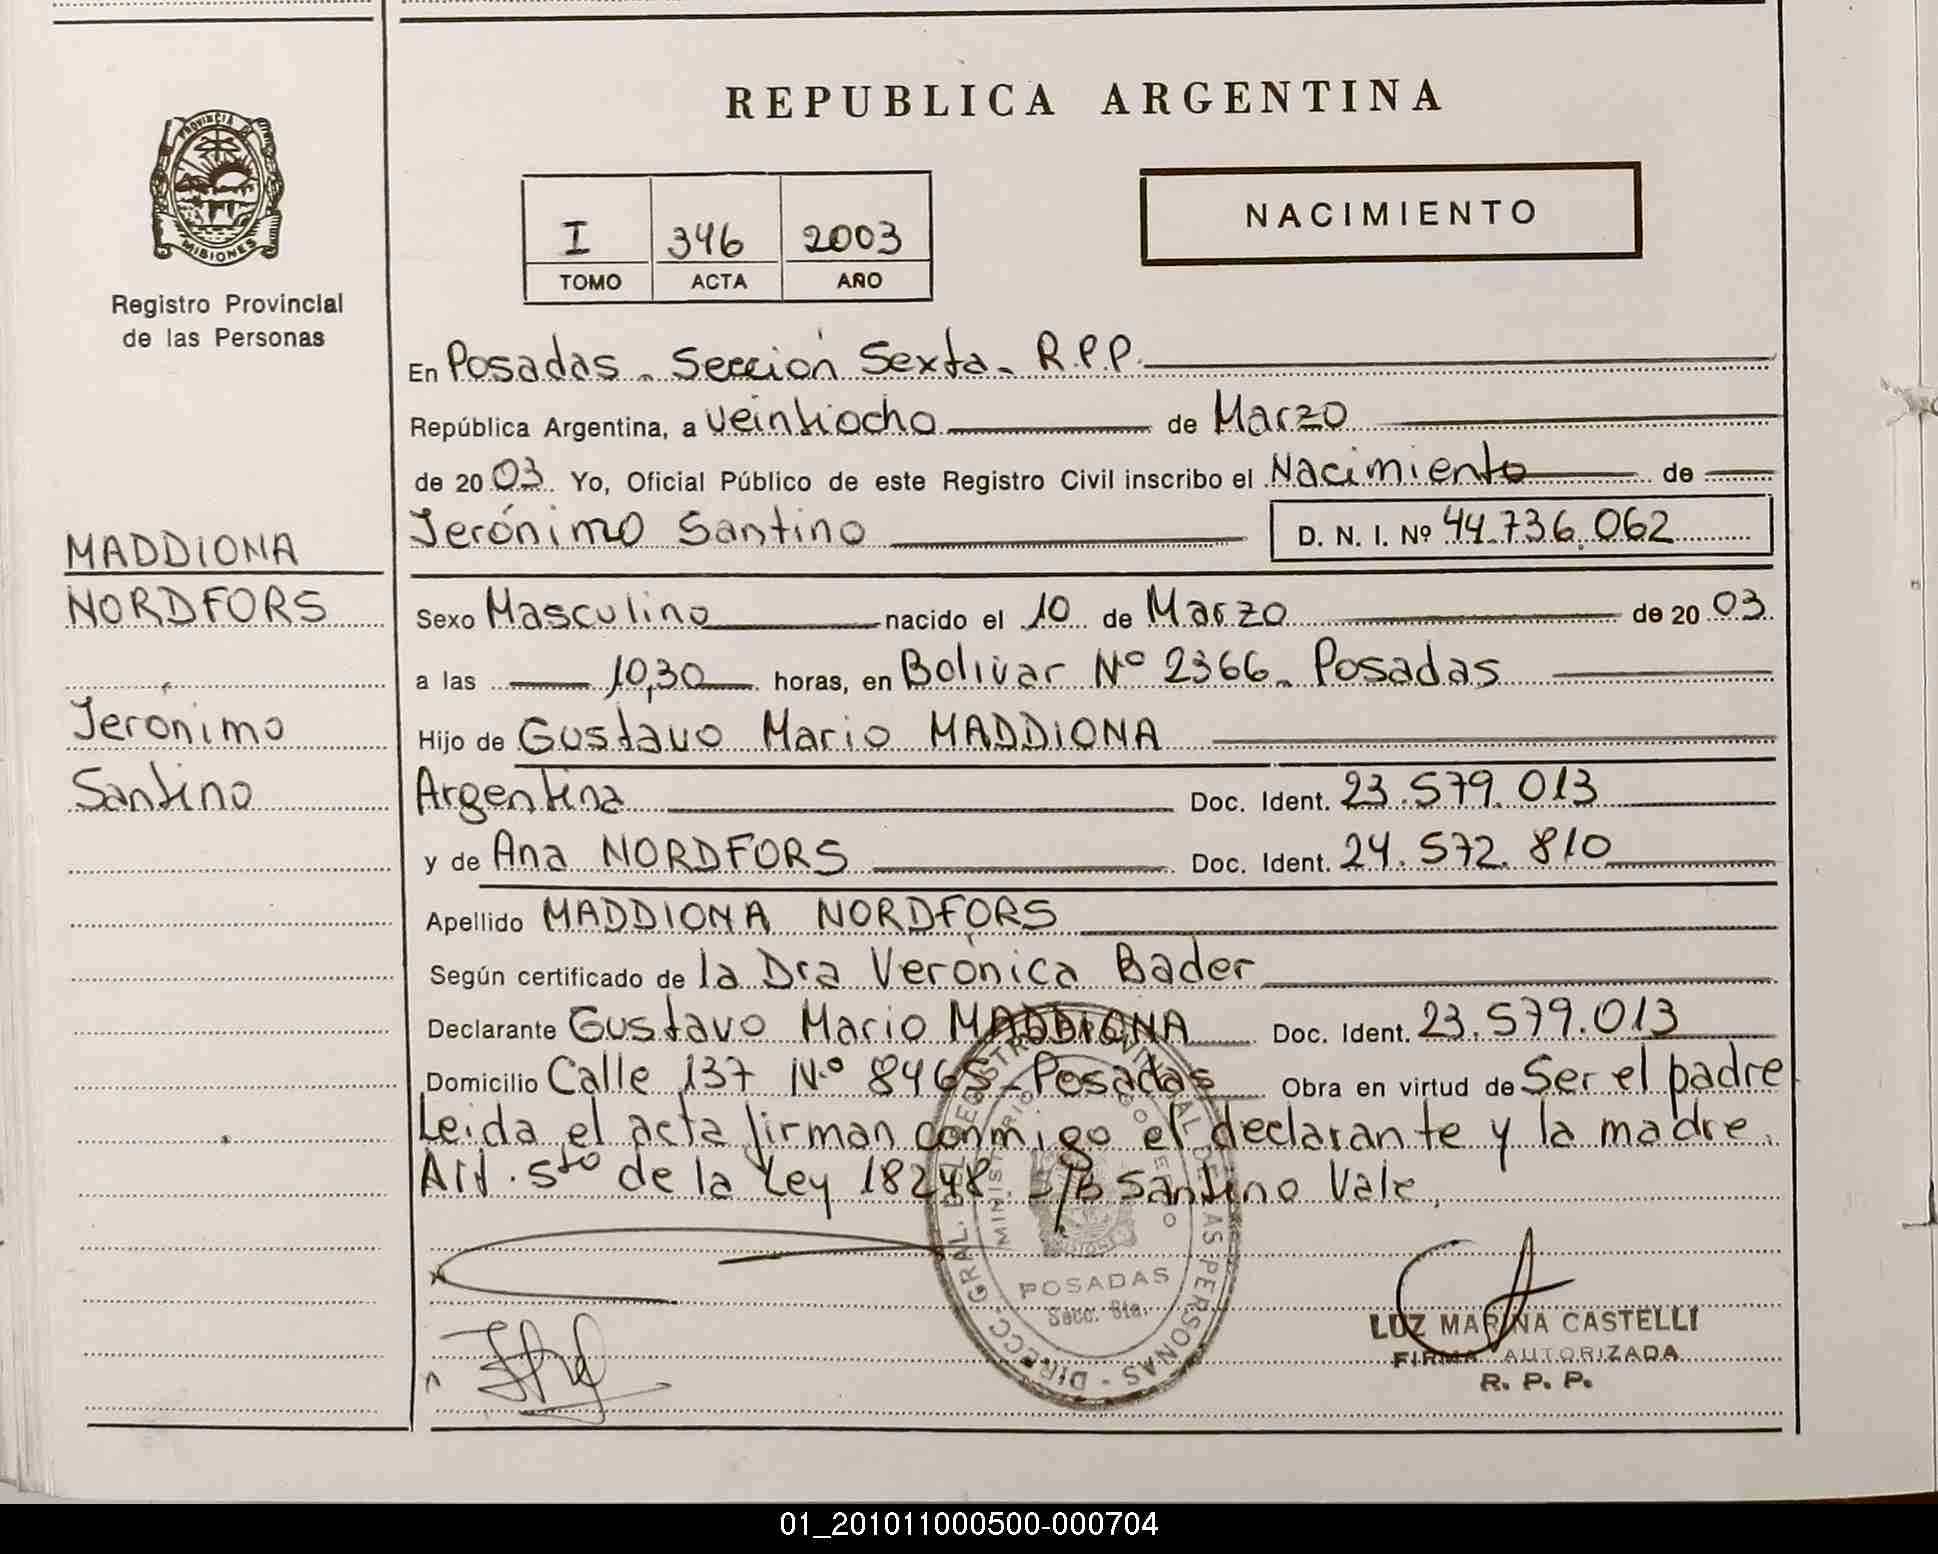 REPUBLICA ARGENTINA
PROVINCIA DE
MISIONES
Registro Provincial
de las Personas
NACIMIENTO
I 346 2003
TOMO ACTA AÑO
En Posadas - Sección Sexta - R.P.P.
República Argentina, a veintiocho de Marzo
de 2003 Yo, Oficial Público de este Registro Civil inscribo el Nacimiento de
Jerónimo Santino D. N. I. Nº 44.736.062
MADDIONA
NORDFORS
Jerónimo
Santino
Sexo Masculino nacido el 10 de Marzo de 2003
a las 10,30 horas, en Bolivar Nº 2366 - Posadas
Hijo de Gustavo Mario MADDIONA
Argentina Doc. Ident. 23.579.013
y de Ana NORDFORS Doc. Ident. 24.572.810
Apellido MADDIONA NORDFORS
Según certificado de la Dra Verónica Bader
Declarante Gustavo Mario MADDIONA Doc. Ident. 23.579.013
Domicilio Calle 137 Nº 8465 - Posadas Obra en virtud de Ser el padre
Leida el acta firman conmigo el declarante y la madre.
Art. 5to de la Ley 18248 S/B Santino Vale,
DIRECC. GRAL. DEL REGISTRO PROVINCIAL DE LAS PERSONAS
MINISTERIO DE GOBIERNO
POSADAS
Secc. 6ta.
LUZ MARINA CASTELLI
FIRMA AUTORIZADA
R. P. P.
01_201011000500-000704